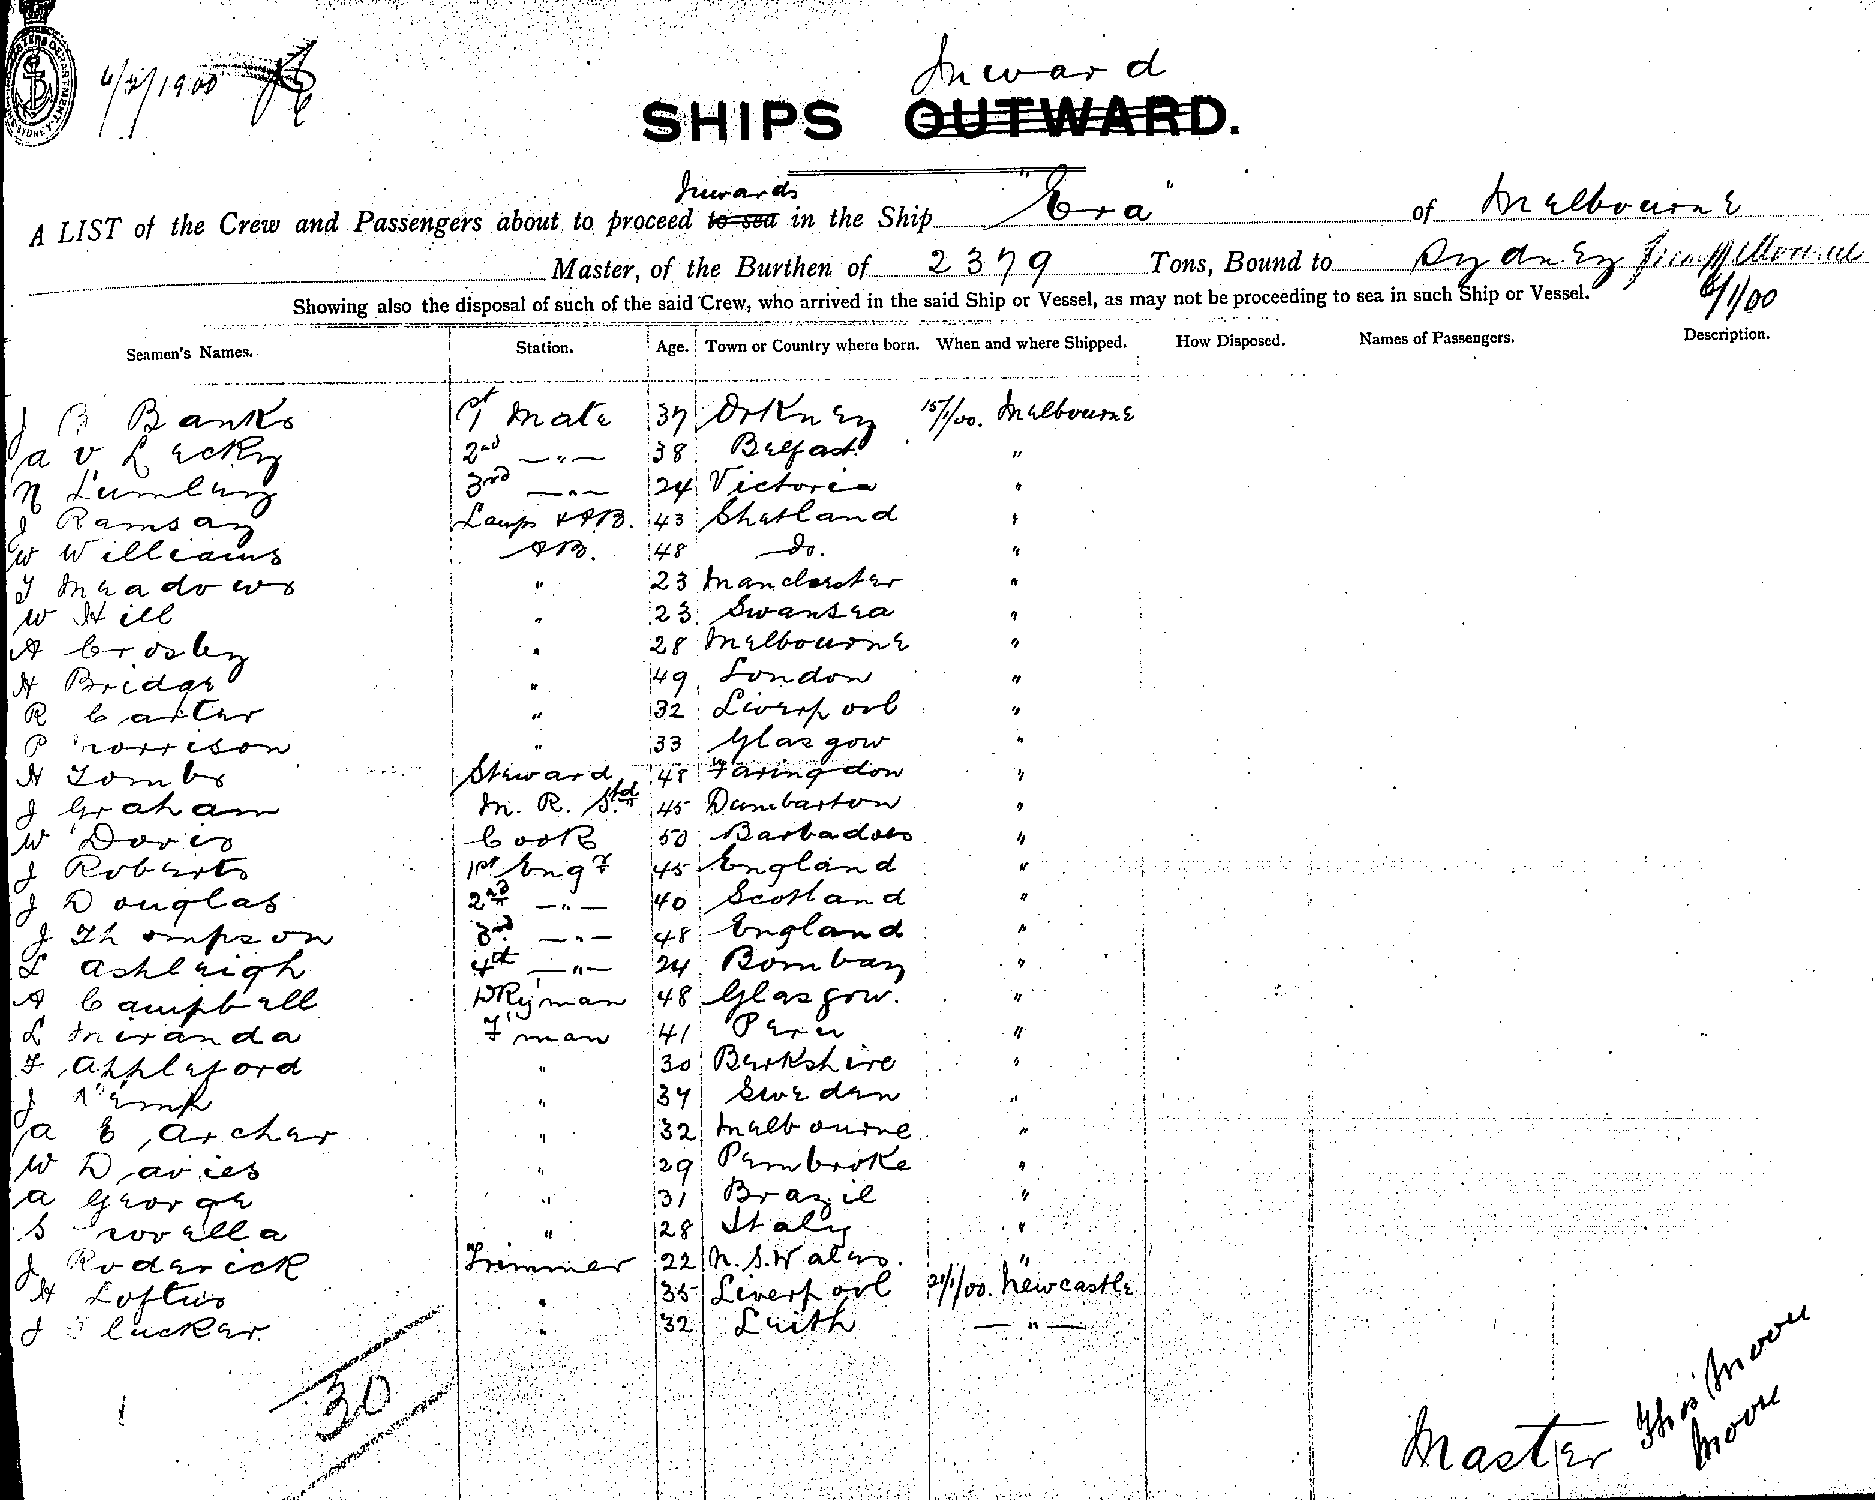 6/2/1900
Inward
SHIPS OUTWARD.
Inwards
A LIST of the Crew and Passengers about to proceed to sea in the Ship "Era" of Melbourne
Master, of the Burthen of 2379 Tons, Bound to Sydney from Melbourne
Showing also the disposal of such of the said Crew, who arrived in the said Ship or Vessel, as may not be proceeding to sea in such Ship or Vessel. 6/1/00
Seamen's Names. Station. Age. Town or Country where born. When and where Shipped. How Disposed. Names of Passengers. Description.
J B Banks 1st Mate 37 Orkney 15/1/00. Melbourne
A V Lecky 2nd —"— 38 Belfast "
N Lumley 3rd —"— 24 Victoria "
J Ramsay Lamps & AB. 43 Shetland "
W Williams AB. 48 —do. "
T Meadows " 23 Manchester "
W Hill " 23 Swansea "
A Crosby " 28 Melbourne "
H Bridge " 49 London "
R Carter " 32 Liverpool "
P Morrison " 33 Glasgow "
H Tombs Steward 48 Faringdon "
J Graham M. R. Std 45 Dumbarton "
W Davis Cook 50 Barbadoes "
J Roberts 1st Engr 45 England "
J Douglas 2nd —"— 40 Scotland "
J Thompson 3rd —"— 48 England "
L Ashleigh 4th —"— 24 Bombay "
A Campbell Dkyman 48 Glasgow. "
L Miranda F'man 41 Peru "
F Appleford " 30 Berkshire "
J Kemp " 37 Sweden "
A E Archer " 32 Melbourne "
W Davies " 29 Pembroke "
A George " 31 Brazil "
S Novella " 28 Italy "
J Roderick Trimmer 22 N. S. Wales. "
H Loftus " 35 Liverpool 21/1/00. Newcastle
J Tucker. " 32 Leith —"—
30
Master Thos Moore
Moore